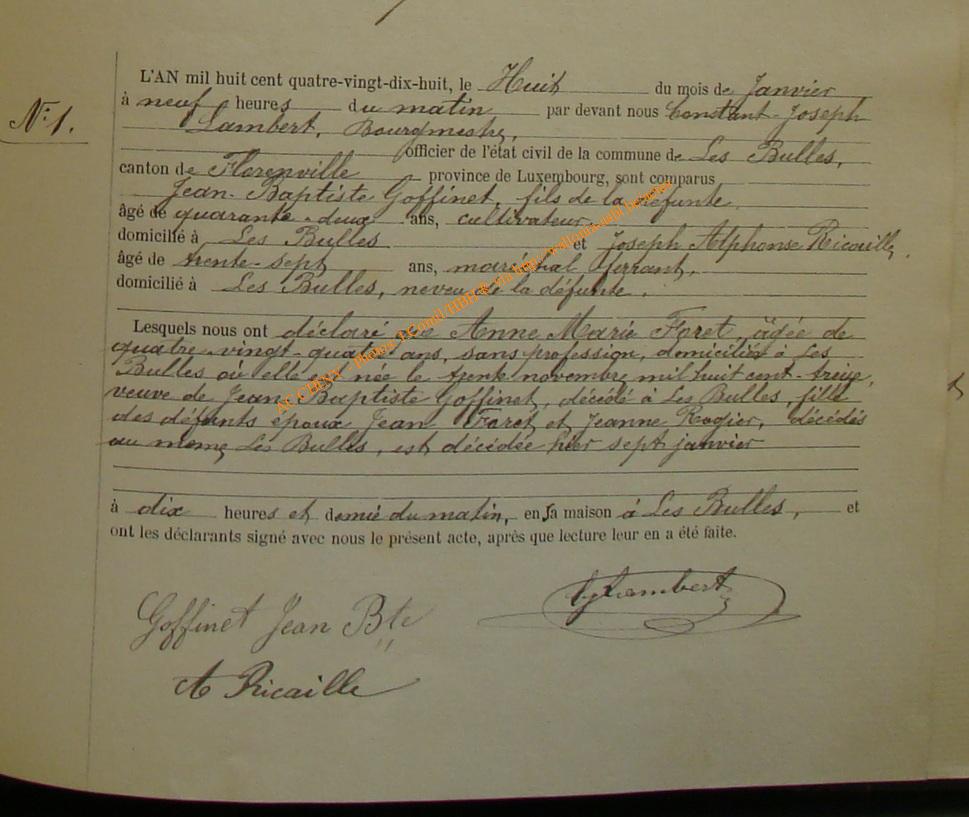 N° 1.
L'AN mil huit cent quatre-vingt-dix-huit, le Huit du mois de Janvier
à neuf heures du matin par devant nous Constant-Joseph
Lambert, Bourgmestre,
officier de l'état civil de la commune de Les Bulles,
canton de Florenville province de Luxembourg, sont comparus
Jean-Baptiste Goffinet, fils de la défunte,
âgé de quarante-deux ans, cultivateur,
domicilié à Les Bulles et Joseph Alphonse Ricaille,
âgé de trente-sept ans, maréchal ferrant,
domicilié à Les Bulles, neveu de la défunte.
Lesquels nous ont déclaré que Anne Marie Foret, âgée de
quatre-vingt-quatre ans, sans profession, domiciliée à Les
Bulles où elle est née le trente novembre mil huit cent-treize,
veuve de Jean-Baptiste Goffinet, décédé à Les Bulles, fille
des défunts époux Jean Foret et Jeanne Rogier, décédés
au même Les Bulles, est décédée hier sept janvier
à dix heures et demie du matin, en sa maison à Les Bulles, et
ont les déclarants signé avec nous le présent acte, après que lecture leur en a été faite.
Lambert
Goffinet Jean Bte
A Ricaille
AC CHINY - Photos J.Comil/HBH ® via http://